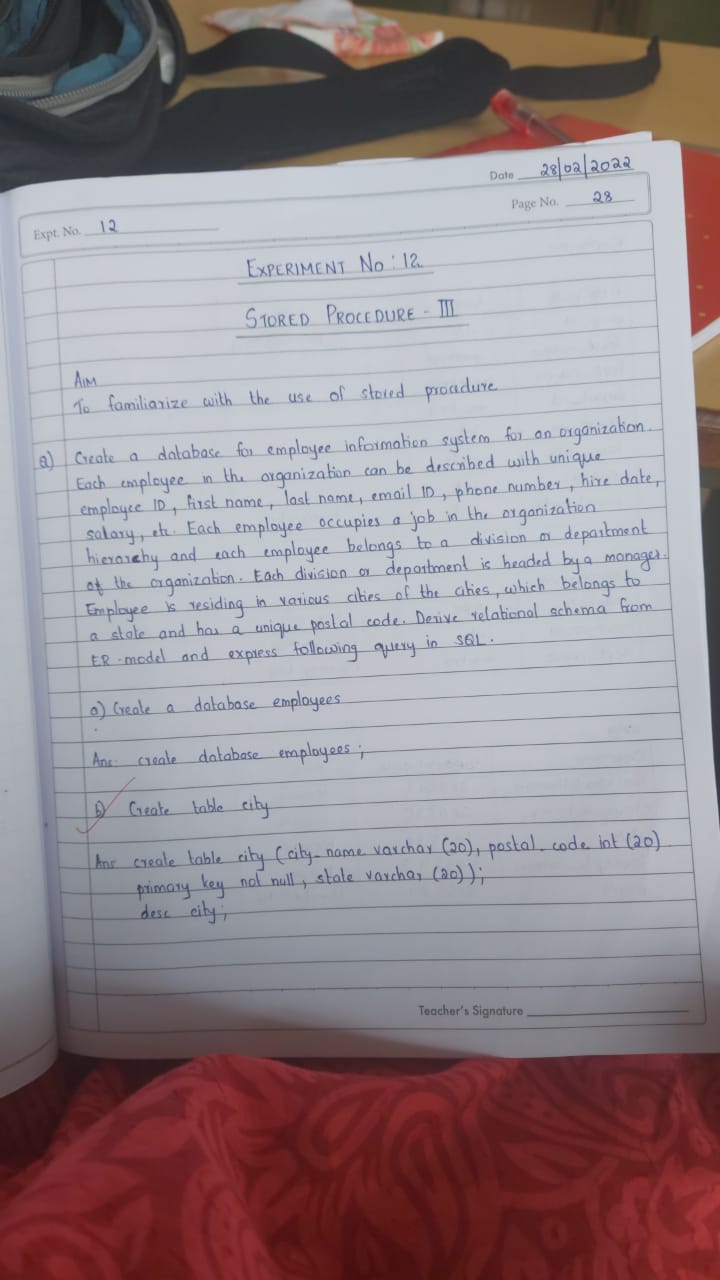 Date 28/02/2022
Expt. No. 12
Page No. 28
EXPERIMENT No : 12
STORED PROCEDURE - III
AIM
To familiarize with the use of stored procedure
a) Create a database for employee information system for an organization.
Each employee in the organization can be described with unique
employee ID, first name, last name, email ID, phone number, hire date,
salary, etc. Each employee occupies a job in the organization
hierarchy and each employee belongs to a division or department
of the organization. Each division or department is headed by a manager.
Employee is residing in various cities of the cities, which belongs to
a state and has a unique postal code. Derive relational schema from
ER-model and express following query in SQL.
a) Create a database employees
Ans: create database employees;
b) Create table city
Ans create table city (city_name varchar (20), postal_code int (20)
primary key not null, state varchar (20));
desc city;
Teacher's Signature